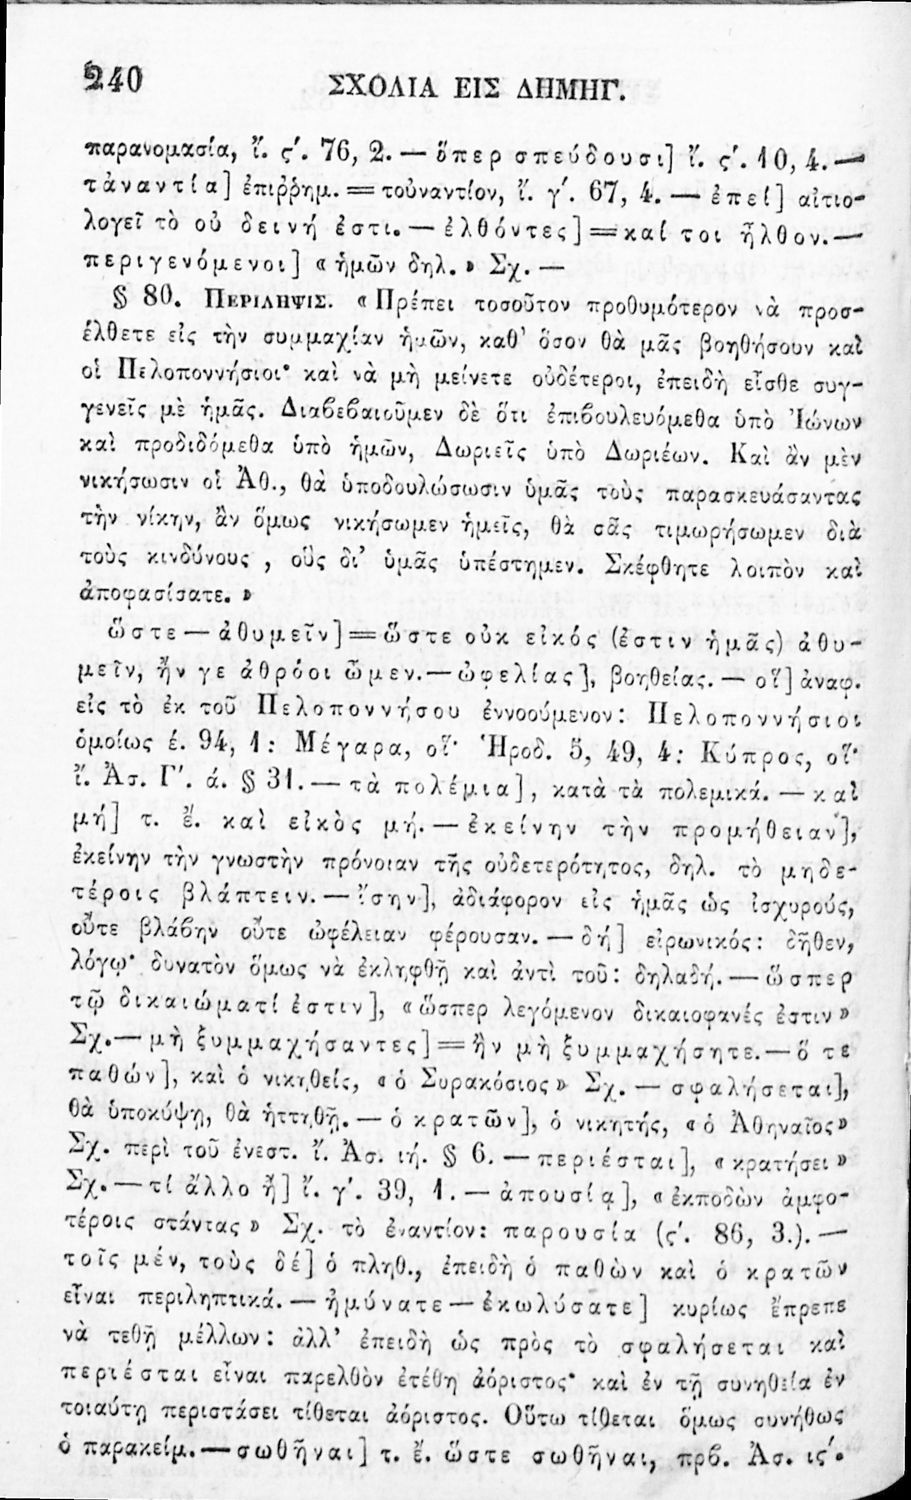 240 ΣΧΟΛΙΑ ΕΙΣ ΔΗΜΗΓ.
παρανομασία, ἴ. ς΄. 76, 2. — ὅπερ σπεύδουσι] ἴ. ς΄. 10, 4. —
τἀναντία] ἐπιῤῥημ. = τοὐναντίον, ἴ. γ΄. 67, 4. — ἐπεί] αἰτιο-
λογεῖ τὸ οὐ δεινή ἐστι. — ἐλθόντες] = καί τοι ἦλθον. —
περιγενόμενοι] « ἡμῶν δηλ. » Σχ. —
§ 80. ΠΕΡΙΛΗΨΙΣ. « Πρέπει τοσοῦτον προθυμότερον νὰ προσ-
έλθετε εἰς τὴν συμμαχίαν ἡμῶν, καθ’ ὅσον θὰ μᾶς βοηθήσουν καὶ
οἱ Πελοποννήσιοι· καὶ νὰ μὴ μείνετε οὐδέτεροι, ἐπειδὴ εἶσθε συγ-
γενεῖς μὲ ἡμᾶς. Διαβεβαιοῦμεν δὲ ὅτι ἐπιβουλευόμεθα ὑπὸ Ἰώνων
καὶ προδιδόμεθα ὑπὸ ἡμῶν, Δωριεῖς ὑπὸ Δωριέων. Καὶ ἂν μὲν
νικήσωσιν οἱ Ἀθ., θὰ ὑποδουλώσωσιν ὑμᾶς τοὺς παρασκευάσαντας
τὴν νίκην, ἂν ὅμως νικήσωμεν ἡμεῖς, θὰ σᾶς τιμωρήσωμεν διὰ
τοὺς κινδύνους , οὓς δι’ ὑμᾶς ὑπέστημεν. Σκέφθητε λοιπὸν καὶ
ἀποφασίσατε. »
ὥστε — ἀθυμεῖν] = ὥστε οὐκ εἰκός (ἐστιν ἡμᾶς) ἀθυ-
μεῖν, ἤν γε ἀθρόοι ὦμεν. — ὠφελίας], βοηθείας. — οἵ] ἀναφ.
εἰς τὸ ἐκ τοῦ Πελοποννήσου ἐννοούμενον: Πελοποννήσιοι
ὁμοίως έ. 94, 1: Μέγαρα, οἵ· Ἡροδ. 5, 49, 4: Κύπρος, οἵ·
ἴ. Ἀσ. Γ΄. ά. § 31. — τὰ πολέμια], κατὰ τὰ πολεμικά. — καὶ
μή] τ. ἔ. καὶ εἰκὸς μή. — ἐκείνην τὴν προμήθειαν],
ἐκείνην τὴν γνωστὴν πρόνοιαν τῆς οὐδετερότητος, δηλ. τὸ μηδε-
τέροις βλάπτειν. — ἴσην], ἀδιάφορον εἰς ἡμᾶς ὡς ἰσχυρούς,
οὔτε βλάβην οὔτε ὠφέλειαν φέρουσαν. — δή] εἰρωνικός: δῆθεν,
λόγῳ· δυνατὸν ὅμως νὰ ἐκληφθῇ καὶ ἀντὶ τοῦ: δηλαδή. — ὥσπερ
τῷ δικαιώματί ἐστιν], « ὥσπερ λεγόμενον δικαιοφανές ἐστιν »
Σχ. — μὴ ξυμμαχήσαντες] = ἢν μὴ ξυμμαχήσητε. — ὅ τε
παθών], καὶ ὁ νικηθείς, « ὁ Συρακόσιος » Σχ. — σφαλήσεται],
θὰ ὑποκύψῃ, θὰ ἡττηθῇ. — ὁ κρατῶν], ὁ νικητής, « ὁ Ἀθηναῖος »
Σχ. περὶ τοῦ ἐνεστ. ἴ. Ἀσ. ιή. § 6. — περιέσται], « κρατήσει »
Σχ. — τί ἄλλο ἢ] ἴ. γ΄. 39, 1. — ἀπουσίᾳ], « ἐκποδὼν ἀμφο-
τέροις στάντας » Σχ. τὸ ἐναντίον: παρουσία (ς΄. 86, 3.). —
τοῖς μέν, τοὺς δέ] ὁ πληθ., ἐπειδὴ ὁ παθὼν καὶ ὁ κρατῶν
εἶναι περιληπτικά. — ἠμύνατε — ἐκωλύσατε] κυρίως ἔπρεπε
νὰ τεθῇ μέλλων: ἀλλ’ ἐπειδὴ ὡς πρὸς τὸ σφαλήσεται καὶ
περιέσται εἶναι παρελθὸν ἐτέθη ἀόριστος· καὶ ἐν τῇ συνηθείᾳ ἐν
τοιαύτῃ περιστάσει τίθεται ἀόριστος. Οὕτω τίθεται ὅμως συνήθως
ὁ παρακείμ. — σωθῆναι] τ. ἔ. ὥστε σωθῆναι, πρβ. Ἀσ. ις΄.